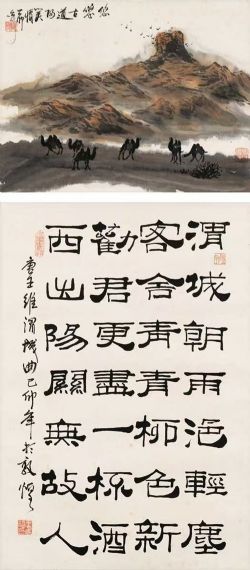 悠悠古道陽关情
渭城朝雨浥輕塵
客舍青青柳色新
勸君更盡一杯酒
西出陽關無故人
唐王維渭城曲己卯年於敦煌